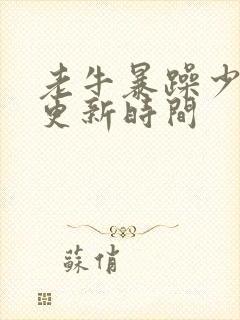 老牛暴躁少
更新時間
蘇俏